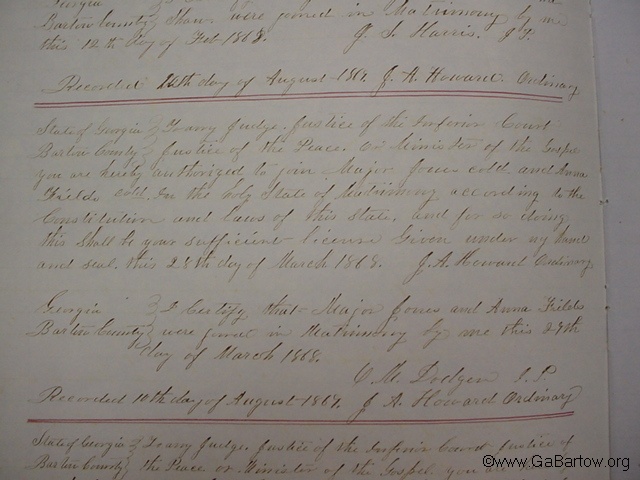 Georgia
Bartow County } Shaw were joined in Matrimony by me
this 12th day of Feb 1868. J. S. Harris. J.P.
Recorded 10th day of August 1869. J. A. Howard. Ordinary
State of Georgia } To any Judge, Justice of the Inferior Court
Bartow County } Justice of the Peace. Or Minister of the Gospel
you are hereby authorized to join Major Jones cold. and Anna
Fields cold. In the Holy State of Matrimony according to the
Constitution and laws of this state. and for so doing
this shall be your sufficient license Given under my hand
and seal. this 28th day of March 1868. J. A. Howard Ordinary
Georgia } I Certify that Major Jones and Anna Fields
Bartow County } were joined in Matrimony by me this 29th
day of March 1868.
C. M. Dodgen J.P.
Recorded 10th day of August 1869. J A. Howard Ordinary
State of Georgia } To any Judge, Justice of the Inferior Court Justice of
Bartow County } the Peace or Minister of the Gospel you are
©www.GaBartow.org